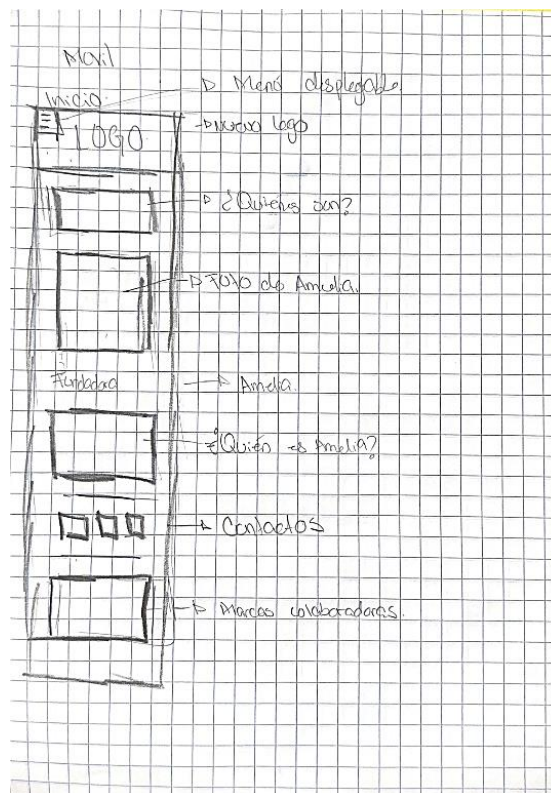 Movil
Menú desplegable.
Inicio
nuevo logo
LOGO
¿Quienes son?
Foto de Amelia.
Fundadora
Amelia.
¿Quién es Amelia?
Contactos
Marcas colaboradoras.